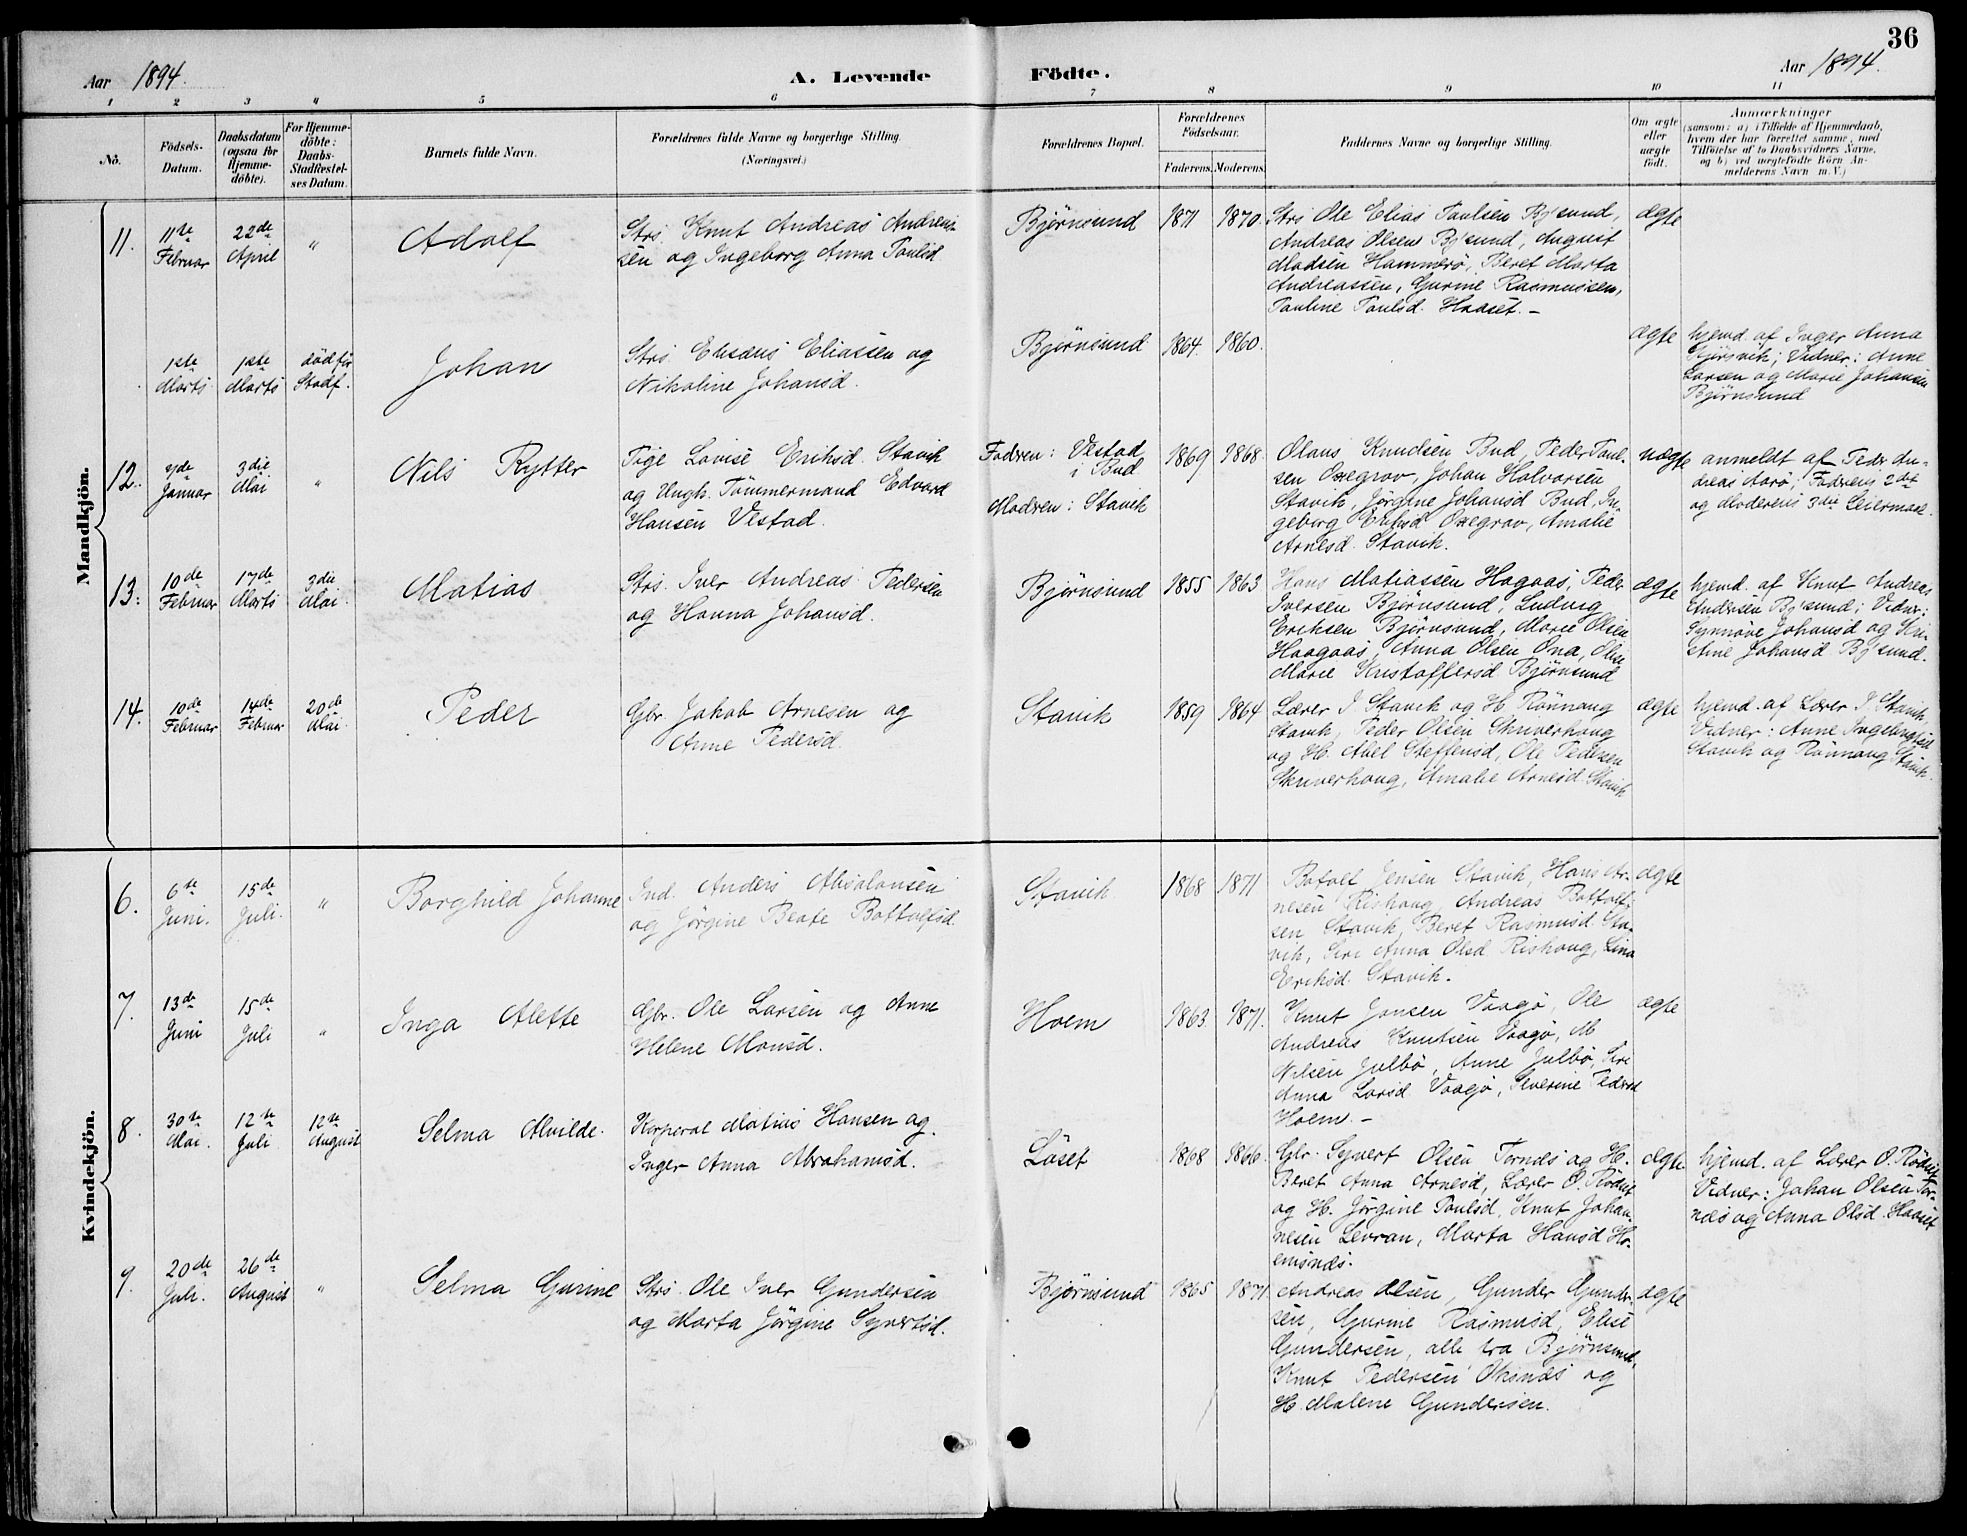 36
Aar 1894.
A. Levende Födte.
Aar 1894.
1 2 3 4 5 6 7 8 9 10 11
No.
Födsels-
Datum.
Daabsdatum
(ogsaa for
Hjemme-
döbte).
For Hjemme-
döbte:
Daabs-
Stadfæstel-
ses Datum.
Barnets fulde Navn.
Forældrenes fulde Navne og borgerlige Stilling.
(Næringsvei.)
Forældrenes Bopæl.
Forældrenes
Födselsaar.
Faderens. Moderens.
Faddernes Navne og borgerlige Stilling.
Om ægte
eller
uægte
födt.
Anmærkninger
(saasom: a) i Tilfælde af Hjemmedaab,
hvem der har forrettet samme, med
Tilföielse af to Daabsvidners Navne,
og b) ved uægtefödte Börn An-
melderens Navn m. V.)
Mandkjön.
11.
11te
Februar
22de
April
"
Adolf
Strs. Knut Andreas Andreas-
sen og Ingeborg Anna Paulsd.
Bjørnsund
1871
1870
Strs Ole Elias Paulsen Bj'sund,
Andreas Olsen Bj'sund, August
Madsen Hammerø, Beret Marta
Andreassen, Gurine Rasmussen,
Pauline Paulsd. Haaset. -
ægte
1ste
Marts
1ste
Marts
död før
Stadf.
Johan
Strs. Elisæus Eliassen og
Nikoline Johansd.
Bjørnsund
1864
1860.
ægte
hjemd. af Inger Anna
Vidner: Anne
Larsen og Marie Johansen
Bjørnsund
12.
7de
Januar
3die
Mai
"
Nils Rytter
Pige Lovise Eriksd. Stavik
og Ungk. Tømmermand Edvard
Hansen Vestad.
Fadren: Vestad
i Bud
Modren: Stavik
1869
1868.
Olaus Knudsen Bud, Peder Paul-
sen Oxegrav, Johan Halvorsen
Stavik, Jørgine Johansd Bud, In-
geborg Eriksd Oxegrav, Amalie
Arnesd. Stavik.
uægte
anmeldt af Peder An-
dreas Aarø; Fadrens 2det
og Moderens 3die Leiermaal.
13.
10de
Februar
17de
Marts
3die
Mai.
Matias
Strs. Iver Andreas Pedersen
og Hanna Johansd.
Bjørnsund
1855
1863
Hans Matiassen Hagaas, Peder
Iversen Bjørnsund, Ludvig
Eriksen Bjørnsund, Marie Olsen
Haagaas, Anna Olsen Ona, Oline
Marie Kristoffersd Bjørnsund
ægte
hjemd. af Knut Andreas
Andersen Bj'sund; Vidner:
Synnøve Johansd og Kri-
stine Johansd Bj'sund.
14.
10de
Februar
14de
Februar
20de
Mai.
Peder
Gbr. Jakob Arnesen og
Anne Pedersd.
Stavik
1859
1864
Lærer I. Stavik og H. Rønnaug
Stavik, Peder Olsen Skriverhaug
og H. Abel Steffensd, Ole Pedersen
Skriverhaug, Amalie Arnesd. Stavik
ægte
hjemd. af Lærer I. Stavik,
Vidner: Anne Ingebrigtsd
Stavik og Rønnaug Stavik.
Kvindekjön.
6.
6te
Juni.
15de
Juli.
"
Borghild Johanne
Ind. Anders Absalonsen
og Jørgine Beate Bottolfsd.
Stavik
1868
1871
Botolf Jensen Stavik, Hans Ar-
nesen Rishaug, Andreas Bottolf-
sen Stavik, Beret Rasmusd. Sta-
vik, Siri Anna Olsd Rishaug, Lina
Eriksd. Stavik.
ægte
7.
13de
Juni
15de
Juli
"
Inga Alette
Gbr. Ole Larsen og Anne
Helene Monsd.
Hoem
1863
1871.
Knut Jonsen Vaagø, Ole
Andreas Knutsen Vaagø, M
Nilsen Julbø, Anne Julbø, Siri
Anna Larsd Vaagø, Severine Pedersd
Hoem. -
ægte
8.
30te
Mai.
12te
Juli
12te
August
Selma Alvilde.
Korporal Matias Hansen og
Inger Anna Abrahamsd.
Løset
1868
1866.
Gbr. Syvert Olsen Tornæs og H.
Beret Anna Arnesd, Lærer O. Rødset
og H. Jørgine Paulsd, Knut Johan-
nesen Levran, Marta Hansd Ho-
emsnæs.
ægte
hjemd. af Lærer O. Rødset
Vidner: Johan Olsen Tor-
næs og Anna Olsd. Haaset
9.
20de
Juli.
26de
August
"
Selma Gurine
Strs. Ole Iver Gundersen
og Marta Jørgine Syvertsd.
Bjørnsund
1865
1871
Andreas Olsen, Gunder Gunder-
sen, Gurine Rasmusd, Elise
Gundersen, alle fra Bjørnsund,
Knut Pedersen og
H. Malene Gundersen.
ægte